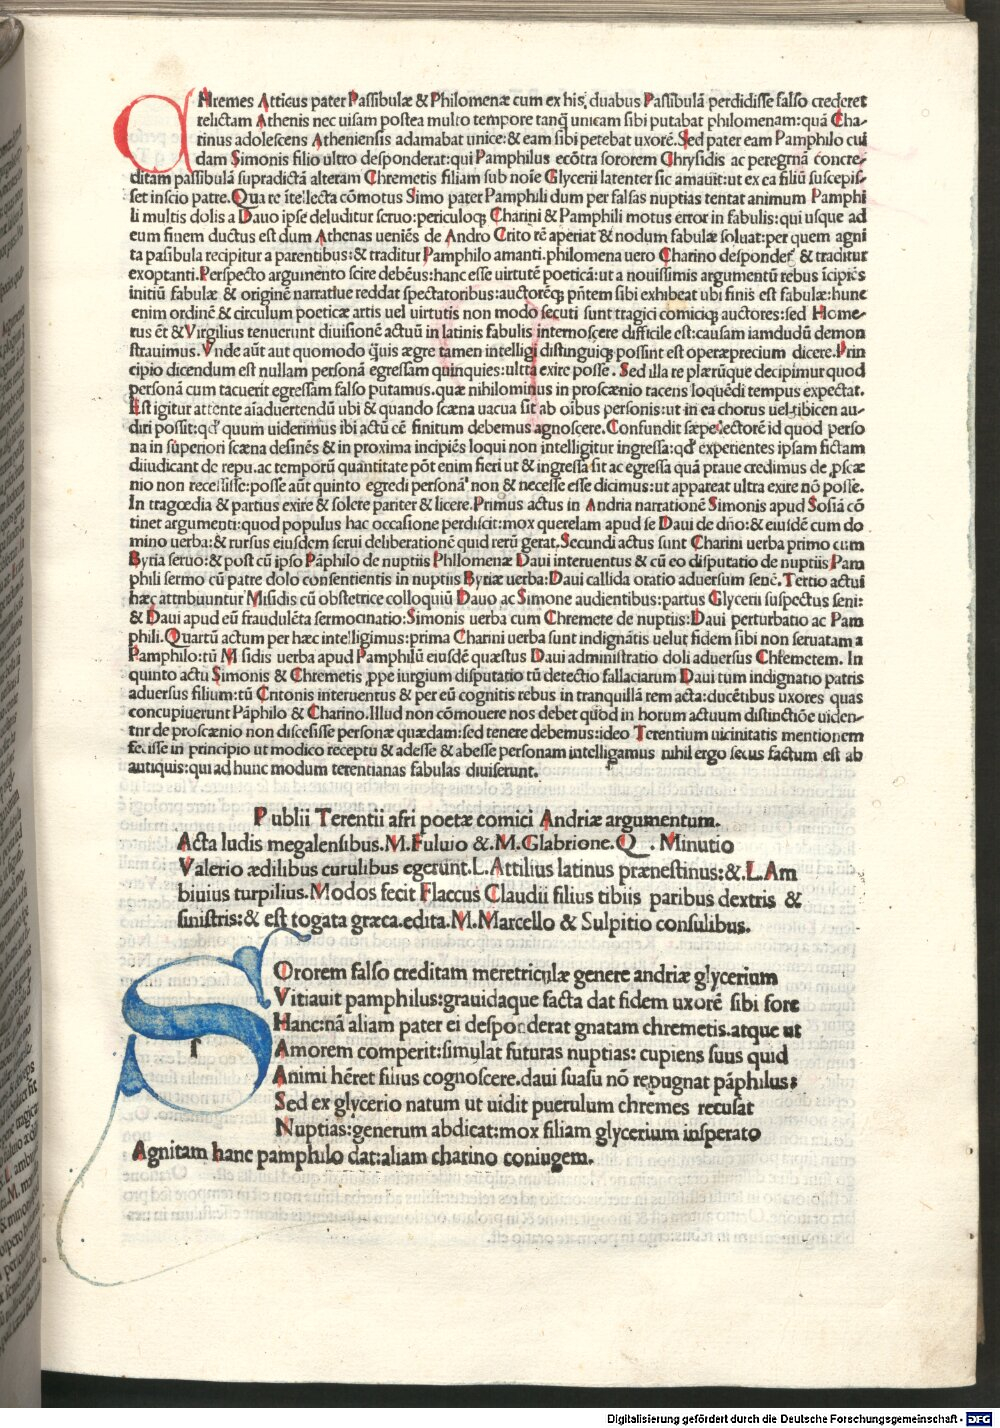 CHremes Atticus pater Passibulæ & Philomenæ cum ex his, duabus Passibulā perdidisse falso crederet
relictam Athenis nec uisam postea multo tempore tanq̃ unicam sibi putabat philomenam: quā Cha-
rinus adolescens Atheniensis adamabat unice: & eam sibi petebat uxorē. Sed pater eam Pamphilo cui
dam Simonis filio ultro desponderat: qui Pamphilus ecōtra sororem Chrysidis ac peregrinā concre-
ditam passibulā supradictā alteram Chremetis filiam sub noīe Glycerii latenter sic amauit: ut ex ea filiū suscepis-
set inscio patre. Qua re ītellecta cōmotus Simo pater Pamphili dum per falsas nuptias tentat animum Pamphi
li multis dolis a Dauo ipse deluditur seruo: periculoq; Charini & Pamphili motus error in fabulis: qui usque ad
eum finem ductus est dum Athenas ueniēs de Andro Crito rē aperiat & nodum fabulæ soluat: per quem agni
ta pasibula recipitur a parentibus: & traditur Pamphilo amanti. philomena uero Charino despondet & traditur
exoptanti. Perspecto argumento scire debēus: hanc esse uirtutē poeticā: ut a nouissimis argumentū rebus īcipiēs
initiū fabulæ & originē narratiue reddat spectatoribus: auctorēq; pñtem sibi exhibeat ubi finis est fabulæ: hunc
enim ordinē & circulum poeticæ artis uel uirtutis non modo secuti sunt tragici comiciq; auctores: sed Home-
rus ēt & Virgilius tenuerunt diuisionē actuū in latinis fabulis internoscere difficile est: causam iamdudū demon
strauimus. Vnde aūt aut quomodo q̃uis ægre tamen intelligi distinguiq; possint est operæprecium dicere. Prin
cipio dicendum est nullam personā egressam quinquies: ultra exire posse. Sed illa re plærūque decipimur quod
personā cum tacuerit egressam falso putamus. quæ nihilominus in proscænio tacens loquēdi tempus expectat.
Est igitur attente aīaduertendū ubi & quando scæna uacua sit ab oībus personis: ut in ea chorus uel tibicen au-
diri possit: qd' quum uiderimus ibi actū cē finitum debemus agnoscere. Confundit sæpe lectorē id quod perso
na in superiori scæna desinēs & in proxima incipiēs loqui non intelligitur ingressa: qd' experientes ipsam fictam
diiudicant de repu. ac temporū quantitate pōt enim fieri ut & ingressa sit ac egressa quā praue credimus de pscæ
nio non recessisse: posse aūt quinto egredi personā non & necesse esse dicimus: ut appareat ultra exire nō posse.
In tragœdia & partius exire & solere pariter & licere. Primus actus in Andria narrationē Simonis apud Sosiā cō
tinet argumenti: quod populus hac occasione perdiscit: mox querelam apud se Daui de dño: & eiusdē cum do
mino uerba: & rursus eiusdem serui deliberationē quid rerū gerat. Secundi actus sunt Charini uerba primo cum
Byria seruo: & post cū ipso Pāphilo de nuptiis Phllomenæ Daui interuentus & cū eo disputatio de nuptiis Pam
phili sermo cū patre dolo consentientis in nuptiis Byriæ uerba: Daui callida oratio aduersum senē. Tertio actui
hæc attribuuntur Misidis cū obstetrice colloquiū Dauo ac Simone audientibus: partus Glycerii suspectus seni:
& Daui apud eū fraudulēta sermocinatio: Simonis uerba cum Chremete de nuptiis: Daui perturbatio ac Pam
phili. Quartū actum per hæc intelligimus: prima Charini uerba sunt indignātis uelut fidem sibi non seruatam a
Pamphilo: tū M sidis uerba apud Pamphilū eiusdē quæstus Daui administratio doli aduersus Chremetem. In
quinto actu Simonis & Chremetis ,ppe iurgium disputatio tū detectio fallaciarum Daui tum indignatio patris
aduersus filium: tū Critonis interuentus & per eū cognitis rebus in tranquillā rem acta: ducētibus uxores quas
concupiuerunt Pāphilo & Charino. Illud non cōmouere nos debet quod in horum actuum distinctiōe uiden-
tur de proscænio non discessisse personæ quædam: sed tenere debemus: ideo Terentium uicinitatis mentionem
fecisse in principio ut modico receptu & adesse & abesse personam intelligamus nihil ergo secus factum est ab
antiquis: qui ad hunc modum terentianas fabulas diuiserunt.
Publii Terentii afri poetæ comici Andriæ argumentum.
Acta ludis megalensibus. M. Fuluio &. M. Glabrione. Q . Minutio
Valerio ædilibus curulibus egerunt. L. Attilius latinus prænestinus: &. L. Am
biuius turpilius. Modos fecit Flaccus Claudii filius tibiis paribus dextris &
sinistris: & est togata græca. edita. M. Marcello & Sulpitio consulibus.
SOrorem falso creditam meretriculæ genere andriæ glycerium
Vitiauit pamphilus: grauidaque facta dat fidem uxorē sibi fore
Hanc: nā aliam pater ei desponderat gnatam chremetis. atque ut
Amorem comperit: simulat futuras nuptias: cupiens suus quid
Animi hēret filius cognoscere. daui suasu nō repugnat pāphilus:
Sed ex glycerio natum ut uidit puerulum chremes recusat
Nuptias: generum abdicat: mox filiam glycerium insperato
Agnitam hanc pamphilo dat: aliam charino coniugem.
Digitalisierung gefördert durch die Deutsche Forschungsgemeinschaft - DFG